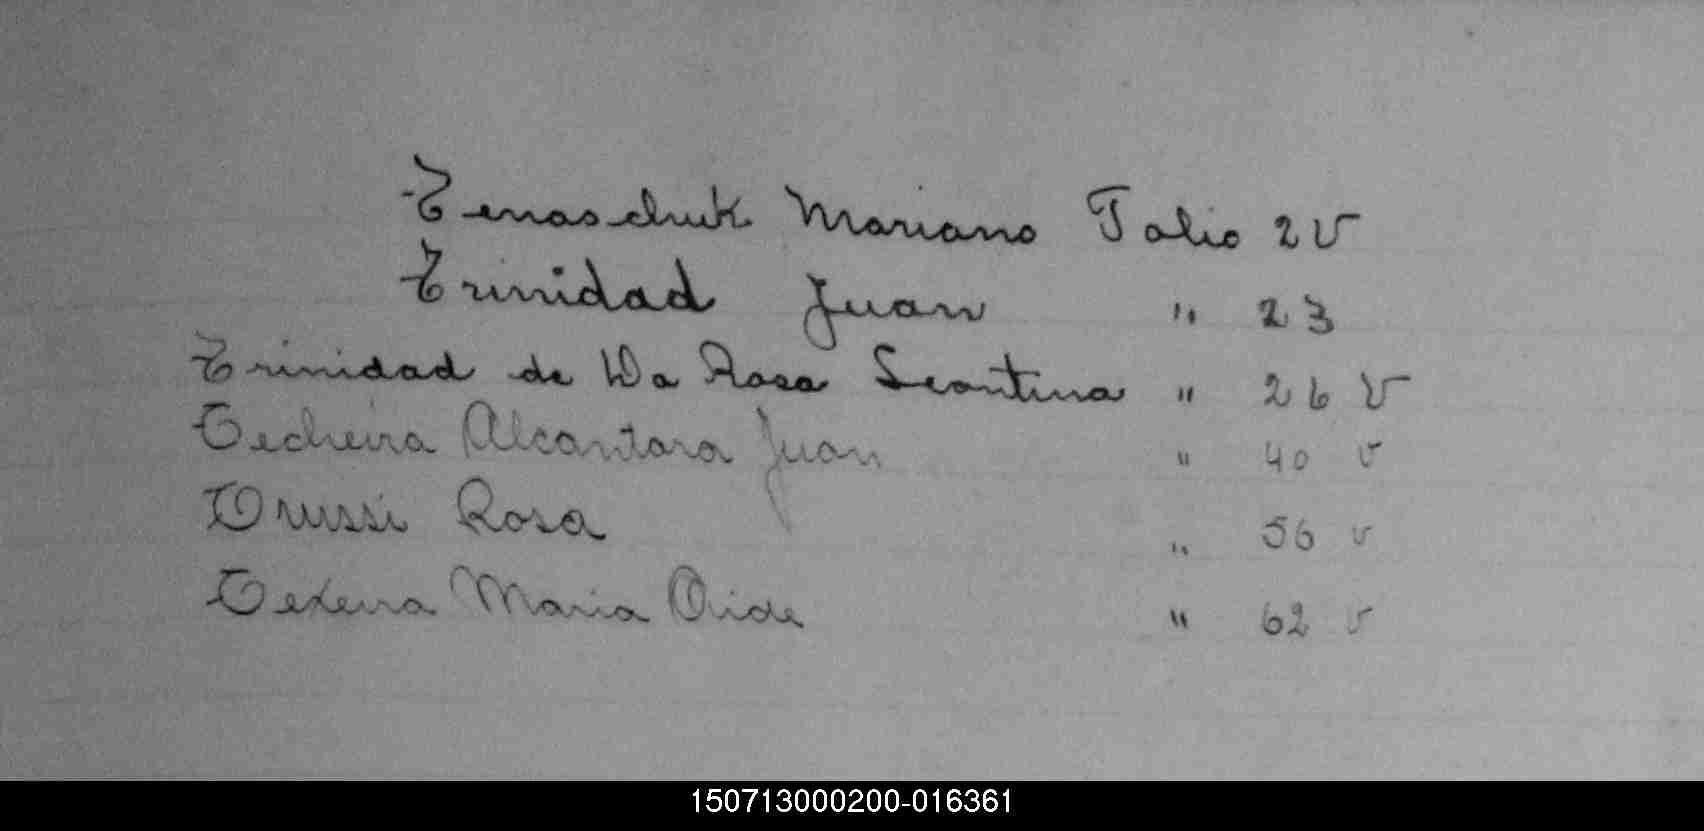 Tenaschuk Mariano Folio 2 V
Trinidad Juan " 23
Trinidad de Da Rosa Leontina " 26 V
Techeira Alcantara Juan " 40 v
Trussi Rosa " 56 v
Texeira Maria Oride " 62 v
150713000200-016361